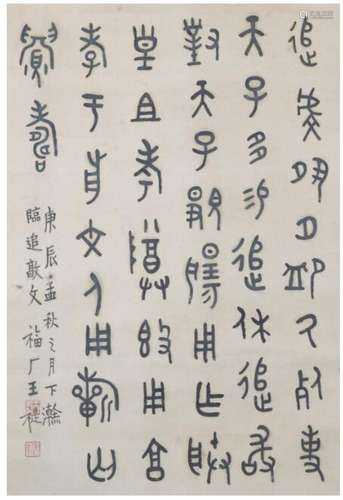 追虔夙夕卹氒死事
天子多易追休追敢
對天子覭揚用乍朕
皇且考𨺅𣪘用亯
孝于前文人用祈匄
眉壽
庚辰孟秋之月下澣
臨追敦文 福厂王禔